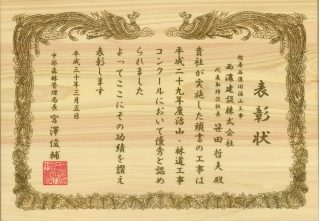 表彰状
治山工事
西濃建設株式会社
代表取締役社長 笹田哲夫殿
貴社が実施した頭書の工事は
平成二十九年度治山・林道工事
コンクールにおいて優秀と認め
られました
よってここにその功績を讃え
表彰します
平成三十年三月五日
中部森林管理局長 宮澤俊輔